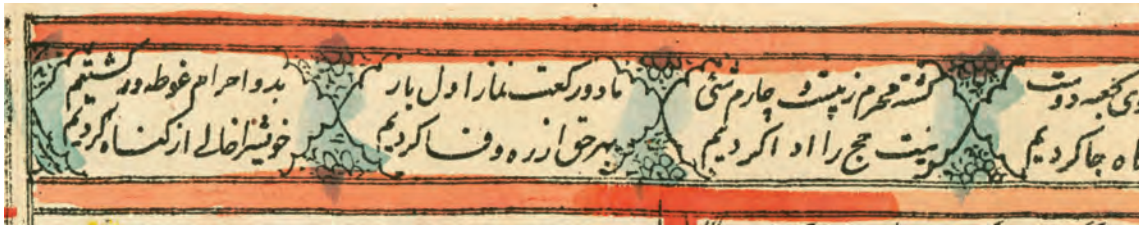 کعبه دوست
جا کردیم
گشته محرم ز بیست و چارم
نیت حج را ادا کردیم
ما دو رکعت نماز اول بار
بهر حق از ره وفا کردیم
بدو احرام غوطه ور گشتیم
خویش را خالے از گناه کردیم